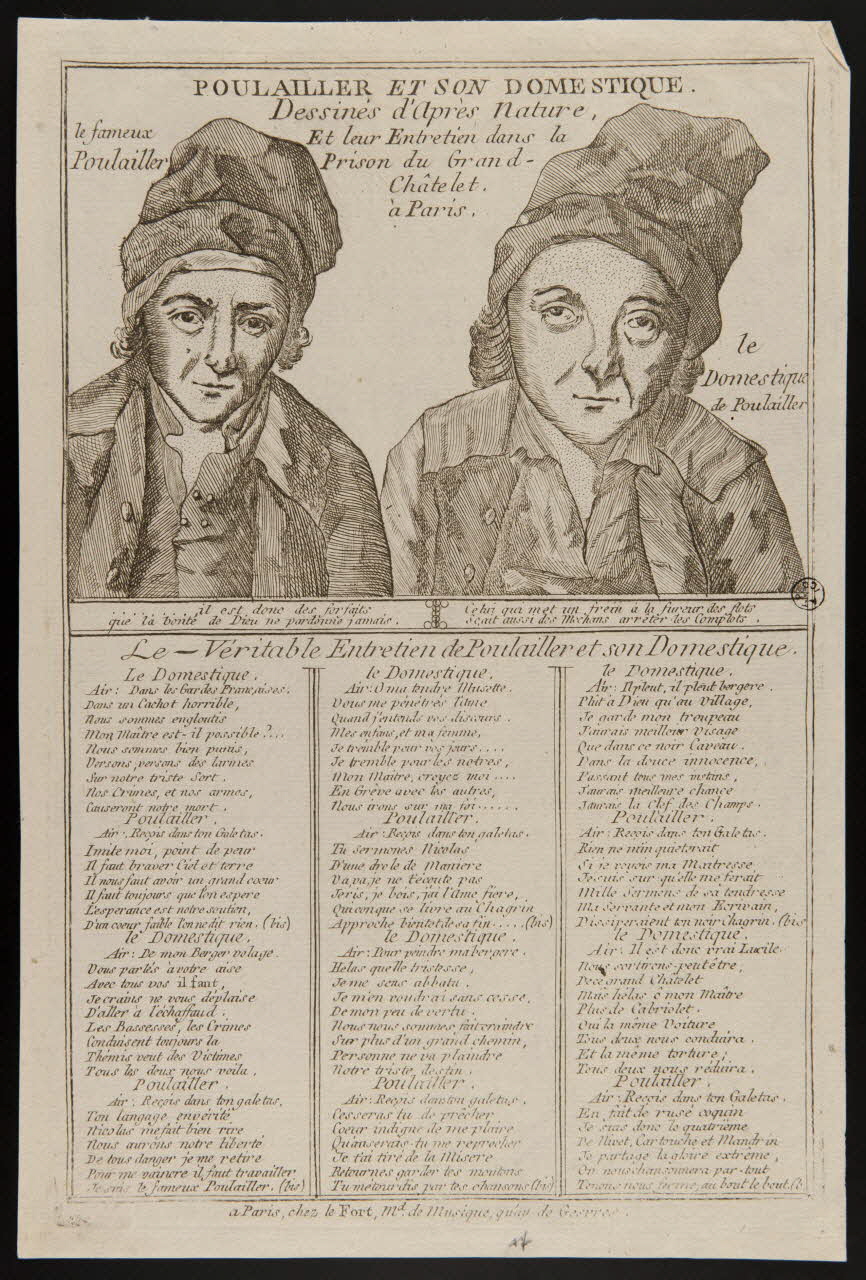 POULAILLER ET SON DOMESTIQUE.
Dessinés d'Après Nature,
Et leur Entretien dans la
Prison du Grand-
Châtelet.
à Paris.
le fameux
Poulailler
le
Domestique
de Poulailler
il est donc des forfaits
que la bonté de Dieu ne pardonne jamais.
Celui qui met un frein à la fureur des flots
Sçait aussi des Mechans arrêter les Complots.
Le Véritable Entretien de Poulailler et son Domestique.
Le Domestique.
Air: Dans les Gardes Françaises.
Dans un Cachot horrible,
Nous sommes engloutis
Mon Maître est-il possible?...
Nous sommes bien punis,
Versons, versons des larmes
Sur notre triste Sort.
Nos Crimes, et nos armes,
Causeront notre mort.
Poulailler.
Air: Reçois dans ton Galetas.
Imite moi, point de peur
Il faut braver Ciel et terre
Il nous faut avoir un grand cœur
Il faut toujours que l'on espere
L'esperance est notre soutien,
D'un coeur faible l'on ne dit rien. (bis)
le Domestique.
Air: De mon Berger volage.
Vous parlés à votre aise
Avec tous vos il faut,
Je crains ne vous déplaise
D'aller à l'échaffaud.
Les Bassesses, les Crimes
Conduisent toujours la
Thémis veut des Victimes
Tous les deux nous voila.
Poulailler.
Air: Reçois dans ton galetas,
Ton langage en vérité
Nicolas me fait bien rire
Nous aurons notre liberté
De tous danger je me retire
Pour me vaincre il faut travailler
Je suis le fameux Poulailler. (bis)
le Domestique,
Air: O ma tendre Musette.
Vous me pénétrés l'âme
Quand j'entends vos discours.
Mes enfans, et ma femme,
Je tremble pour vos jours....
Je tremble pour les notres,
Mon Maître, croyez moi....
En Grêve avec les autres,
Nous irons sur ma foi......
Poulailler.
Air: Reçois dans ton galetas.
Tu sermones Nicolas
D'une drole de Maniere
Va va je ne t'écoute pas
Je ris, je bois, j'ai l'Ame fiere,
Quiconque se livre au Chagrin
Approche bientot de sa fin.... (bis)
le Domestique.
Air: Pour peindre ma bergere.
Helas quelle tristesse,
Je me sens abbatu.
Je m'en voudrai sans cesse,
De mon peu de vertu.
Nous nous sommes fait craindre
Sur plus d'un grand chemin,
Personne ne va plaindre
Notre triste destin.
Poulailler.
Air: Reçois dans ton galetas.
Cesseras tu de prêcher
Coeur indigne de me plaire
Qu'auserais-tu me reprocher
Je t'ai tiré de la Misere
Retournes garder tes moutons
Tu m'étourdis par tes chansons (bis)
le Domestique.
Air: Il pleut, il pleut bergere.
Plut à Dieu qu'au Village,
Je garde mon troupeau
J'aurais meilleur Visage
Que dans ce noir Caveau.
Dans la douce innocence,
Passant tous mes instans,
J'aurais meilleure chance
J'aurais la Clef des Champs.
Poulailler.
Air: Reçois dans ton Galetas.
Rien ne m'inquieterait
Si je voyois ma Maitresse
Je suis sur qu'elle me ferait
Mille Sermens de sa tendresse
Ma Servante et mon Ecrivain,
Dissiperaient ton noir Chagrin. (bis
le Domestique.
Air: Il est donc vrai Lucile.
Nous sortirons peut être,
De ce grand Châtelet
Mais hélas ô mon Maître
Plus de Cabriolet.
Oui la même Voiture
Tous deux nous conduira.
Et la même torture,
Tous deux nous réduira.
Poulailler.
Air: Reçois dans ton Galetas.
En fait de rusé coquin
Je suis donc le quatrième
De Nivet, Cartouche et Mandrin
Je partage la gloire extrême,
On nous chansonnera par-tout
Tenons nous ferme, au bout le bout. (b.
à Paris, chez le Fort, Md. de Musique, quay de Gesvres.